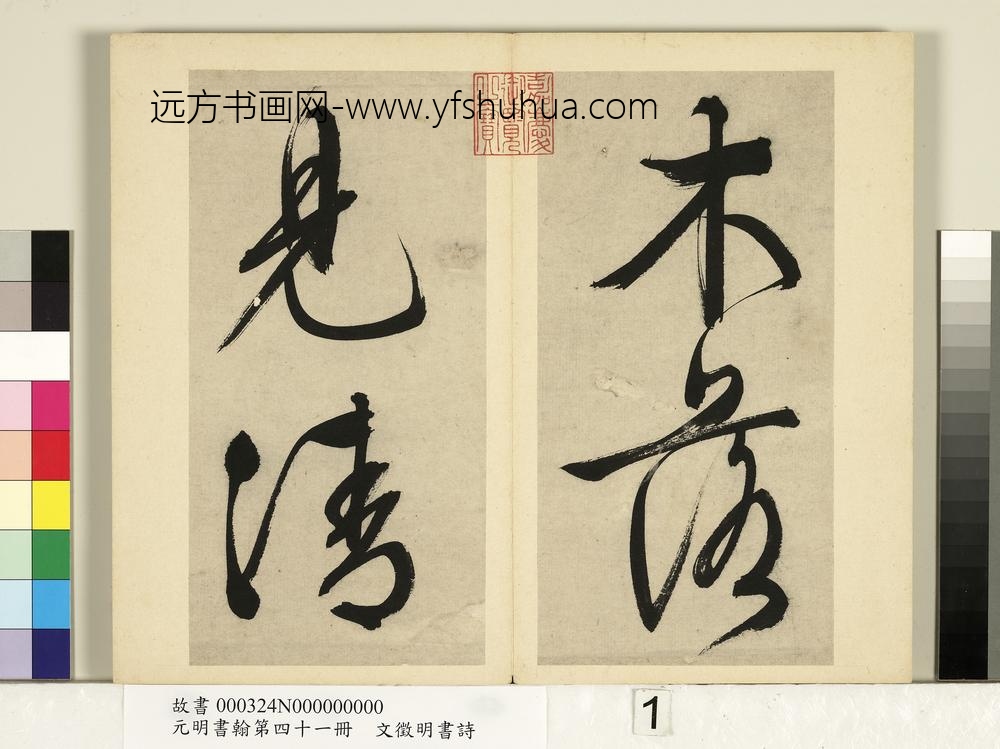 远方书画网-www.yfshuhua.com
嘉慶
御覽
之寶
木落
見清
故書 000324N000000000
元明書翰第四十一冊 文徵明書詩
1